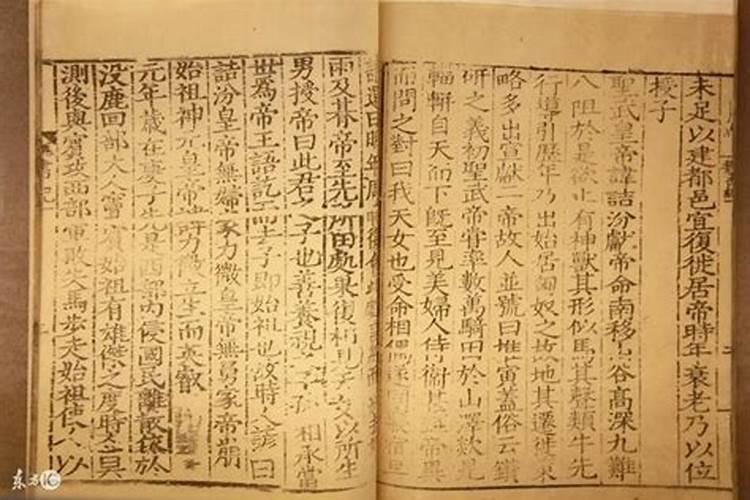 未足以建都邑宜復徙居帝時年衰老乃以位
授子
聖武皇帝諱詰汾獻帝命南移山谷高深九難
八阻於是欲止有神獸其形似馬其聲類牛先
行導引歷年乃出始居匈奴之故地其遷徙
略多出宣獻二帝故人並號曰推寅蓋俗云鑽
研之義初聖武帝嘗率數萬騎田於山澤欻見
輜軿自天而下既至見美婦人侍衛甚帝異
而問之對曰我天女也受命相偶
還曰
而及朞帝至先所田處果復相見以所生
男授帝曰此君之子也善養視之子孫相承當
世為帝王語訖而去子即始祖也故時人諺曰
詰汾皇帝無婦家力微皇帝無舅家帝崩
始祖神元皇帝諱力微立生而英叡
元年歲在庚子先是西部內侵國民離散依於
没鹿回部大人竇賓始祖有雄傑之度時人莫
測後與賓攻西部軍敗失馬步走始祖使人以
东方IC